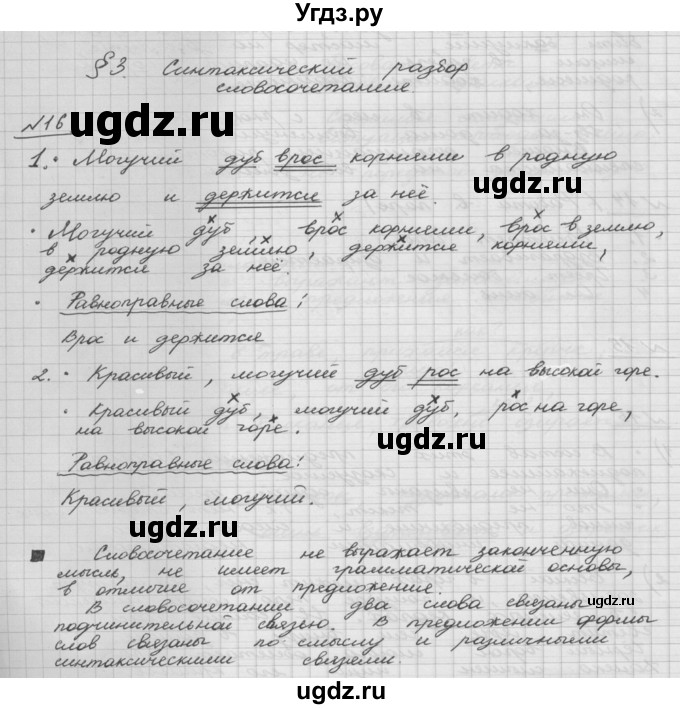 Угдз.ру
§3 Синтаксический разбор
словосочетание
№16 ugdz.ru
1. · Могучий дуб врос корнями в родную
землю и держится за неё.
· Могучий дуб, врос корнями, врос в землю,
в родную землю, держится корнями,
держится за неё.
ugdz.ru
· Равноправные слова:
Врос и держится
2. · Красивый, могучий дуб рос на высокой горе.
· Красивый дуб, могучий дуб, рос на горе,
на высокой горе.
ugdz.ru
Равноправные слова:
Красивый, могучий.
ugdz.ru
Словосочетание не выражает законченную
мысль, не имеет грамматической основы,
в отличие от предложение.
ugdz.ru
В словосочетании два слова связаны
подчинительной связью. В предложении формы
слов связаны по смыслу и различными
синтаксическими связями.
ugdz.ru